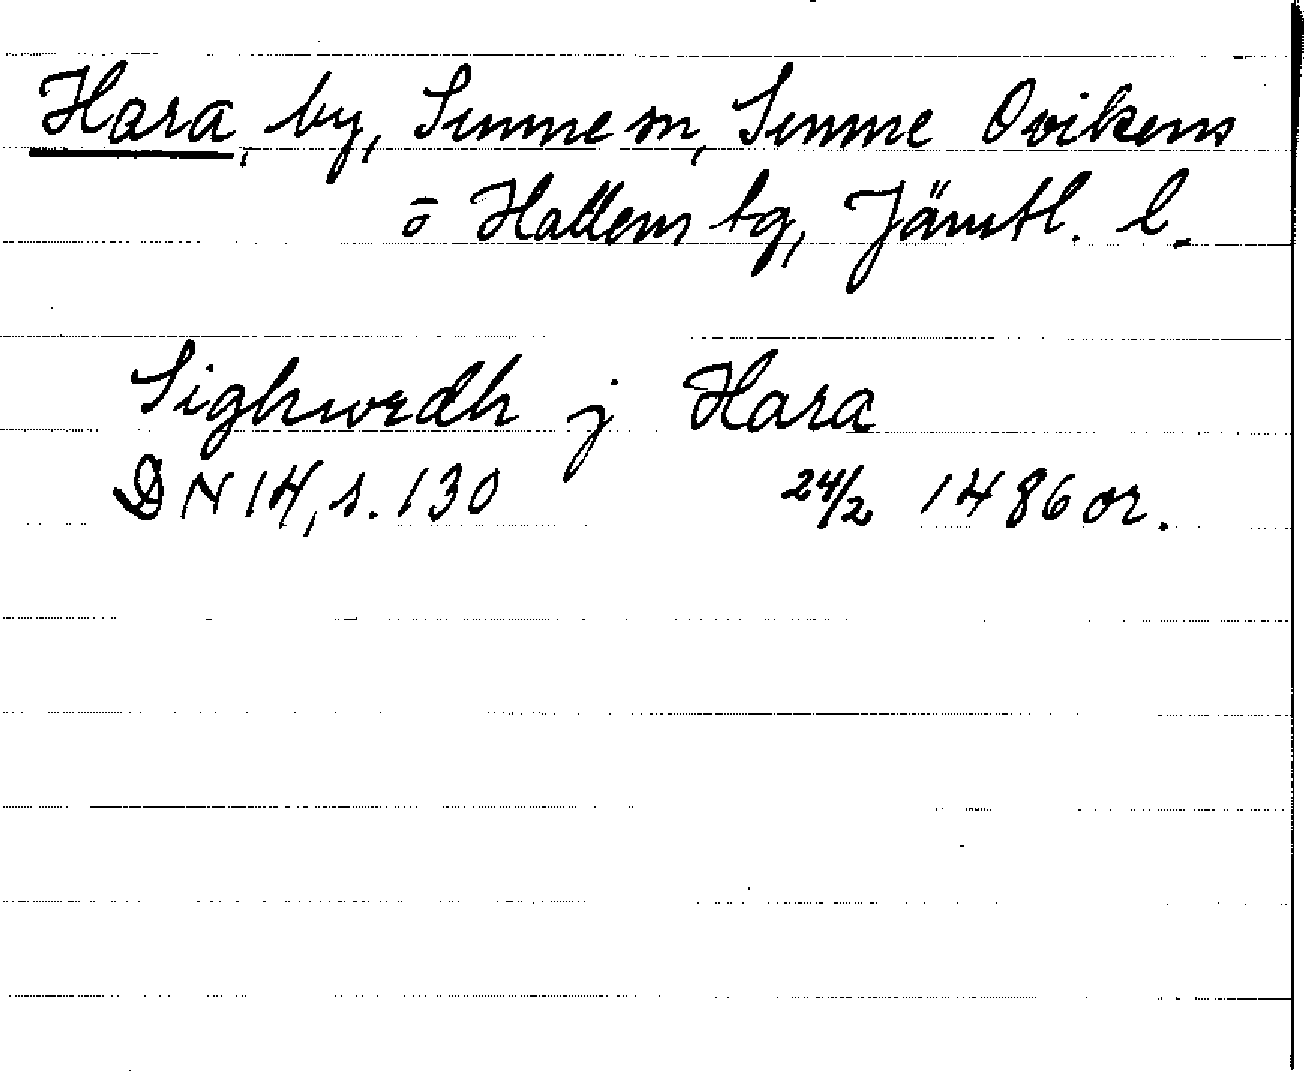 Hara, by, Sunne sn, Sunne Ovikens
o Hallens tg, Jämtl. l.
Sighwedh j Hara
DN 14, s. 130 24/2 1486 or.